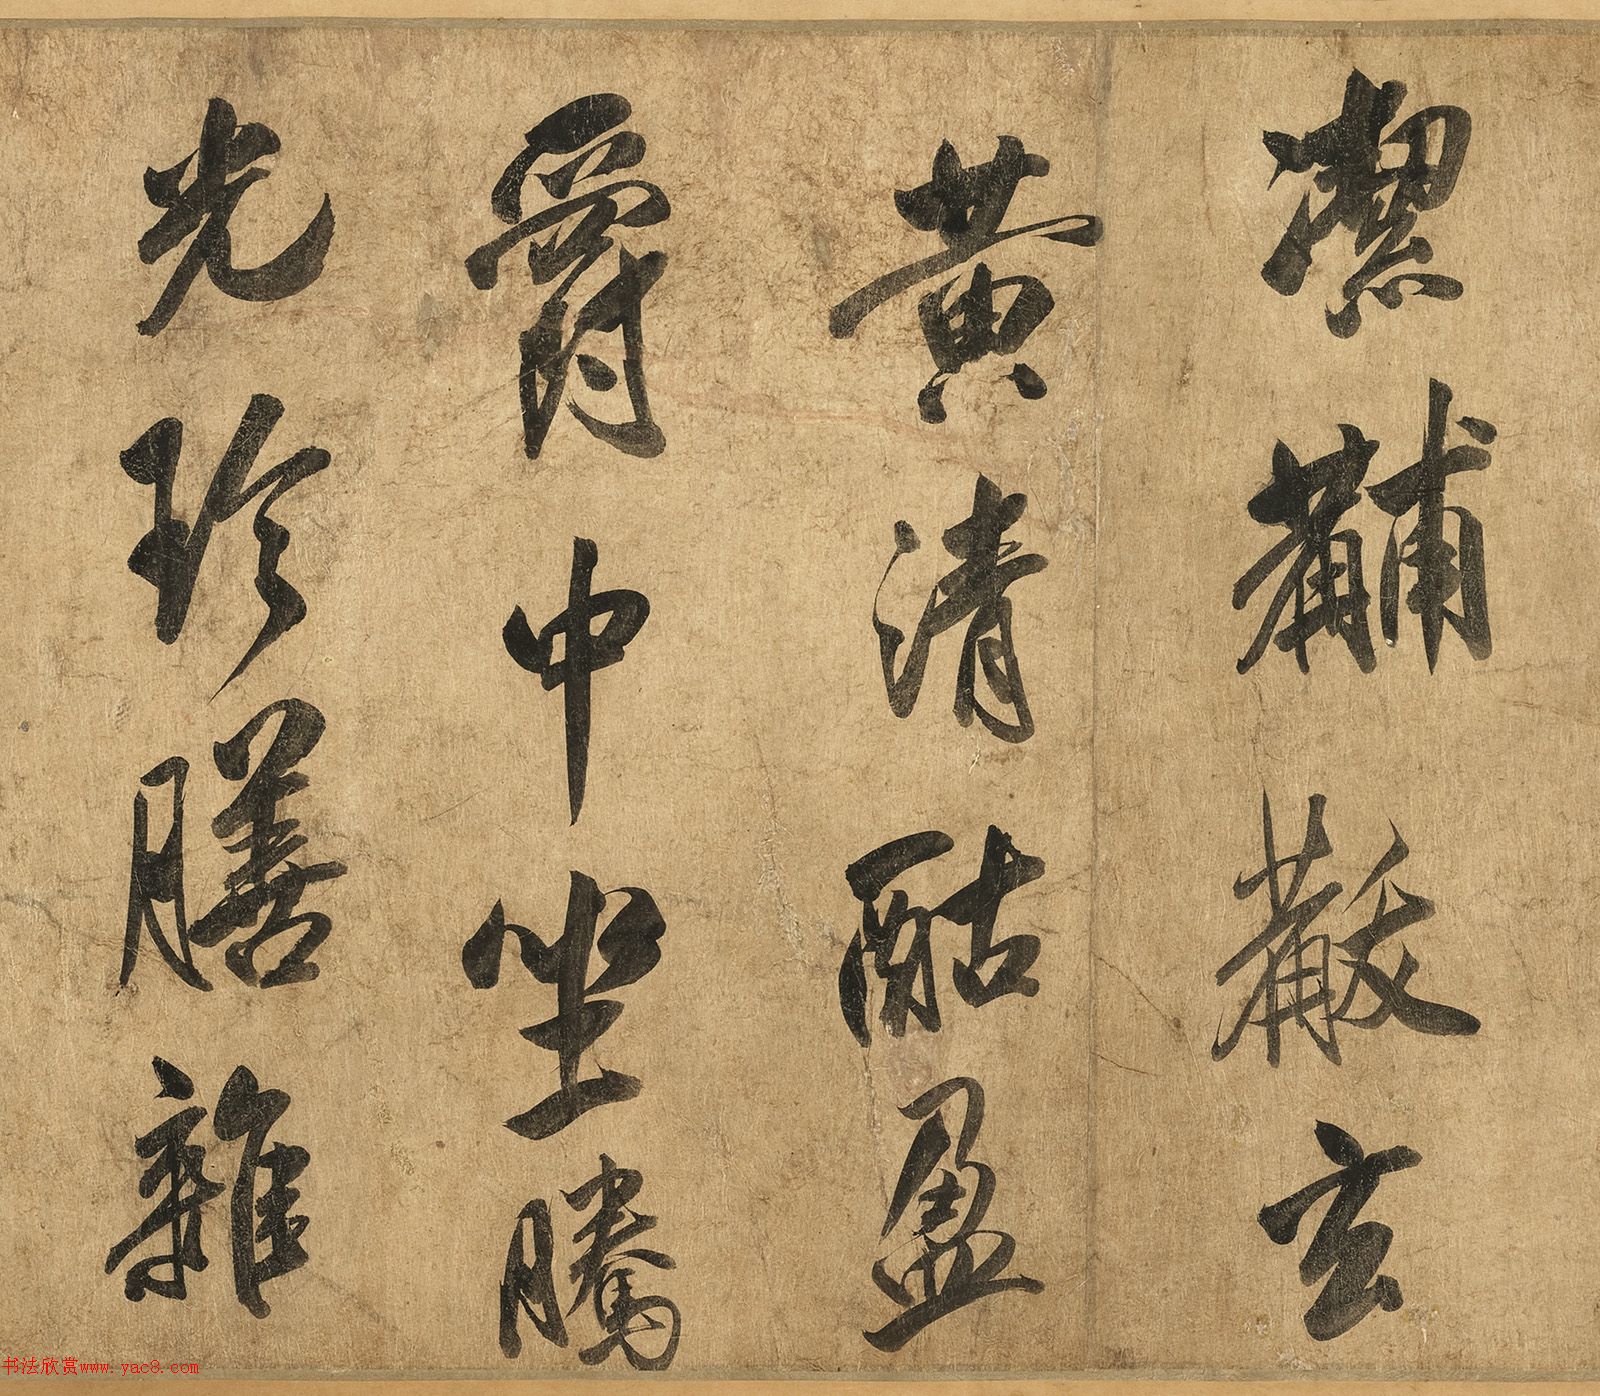 潔黼黻玄
黄清酤盈
爵中坐騰
光珍膳雜
书法欣赏www.yac8.com